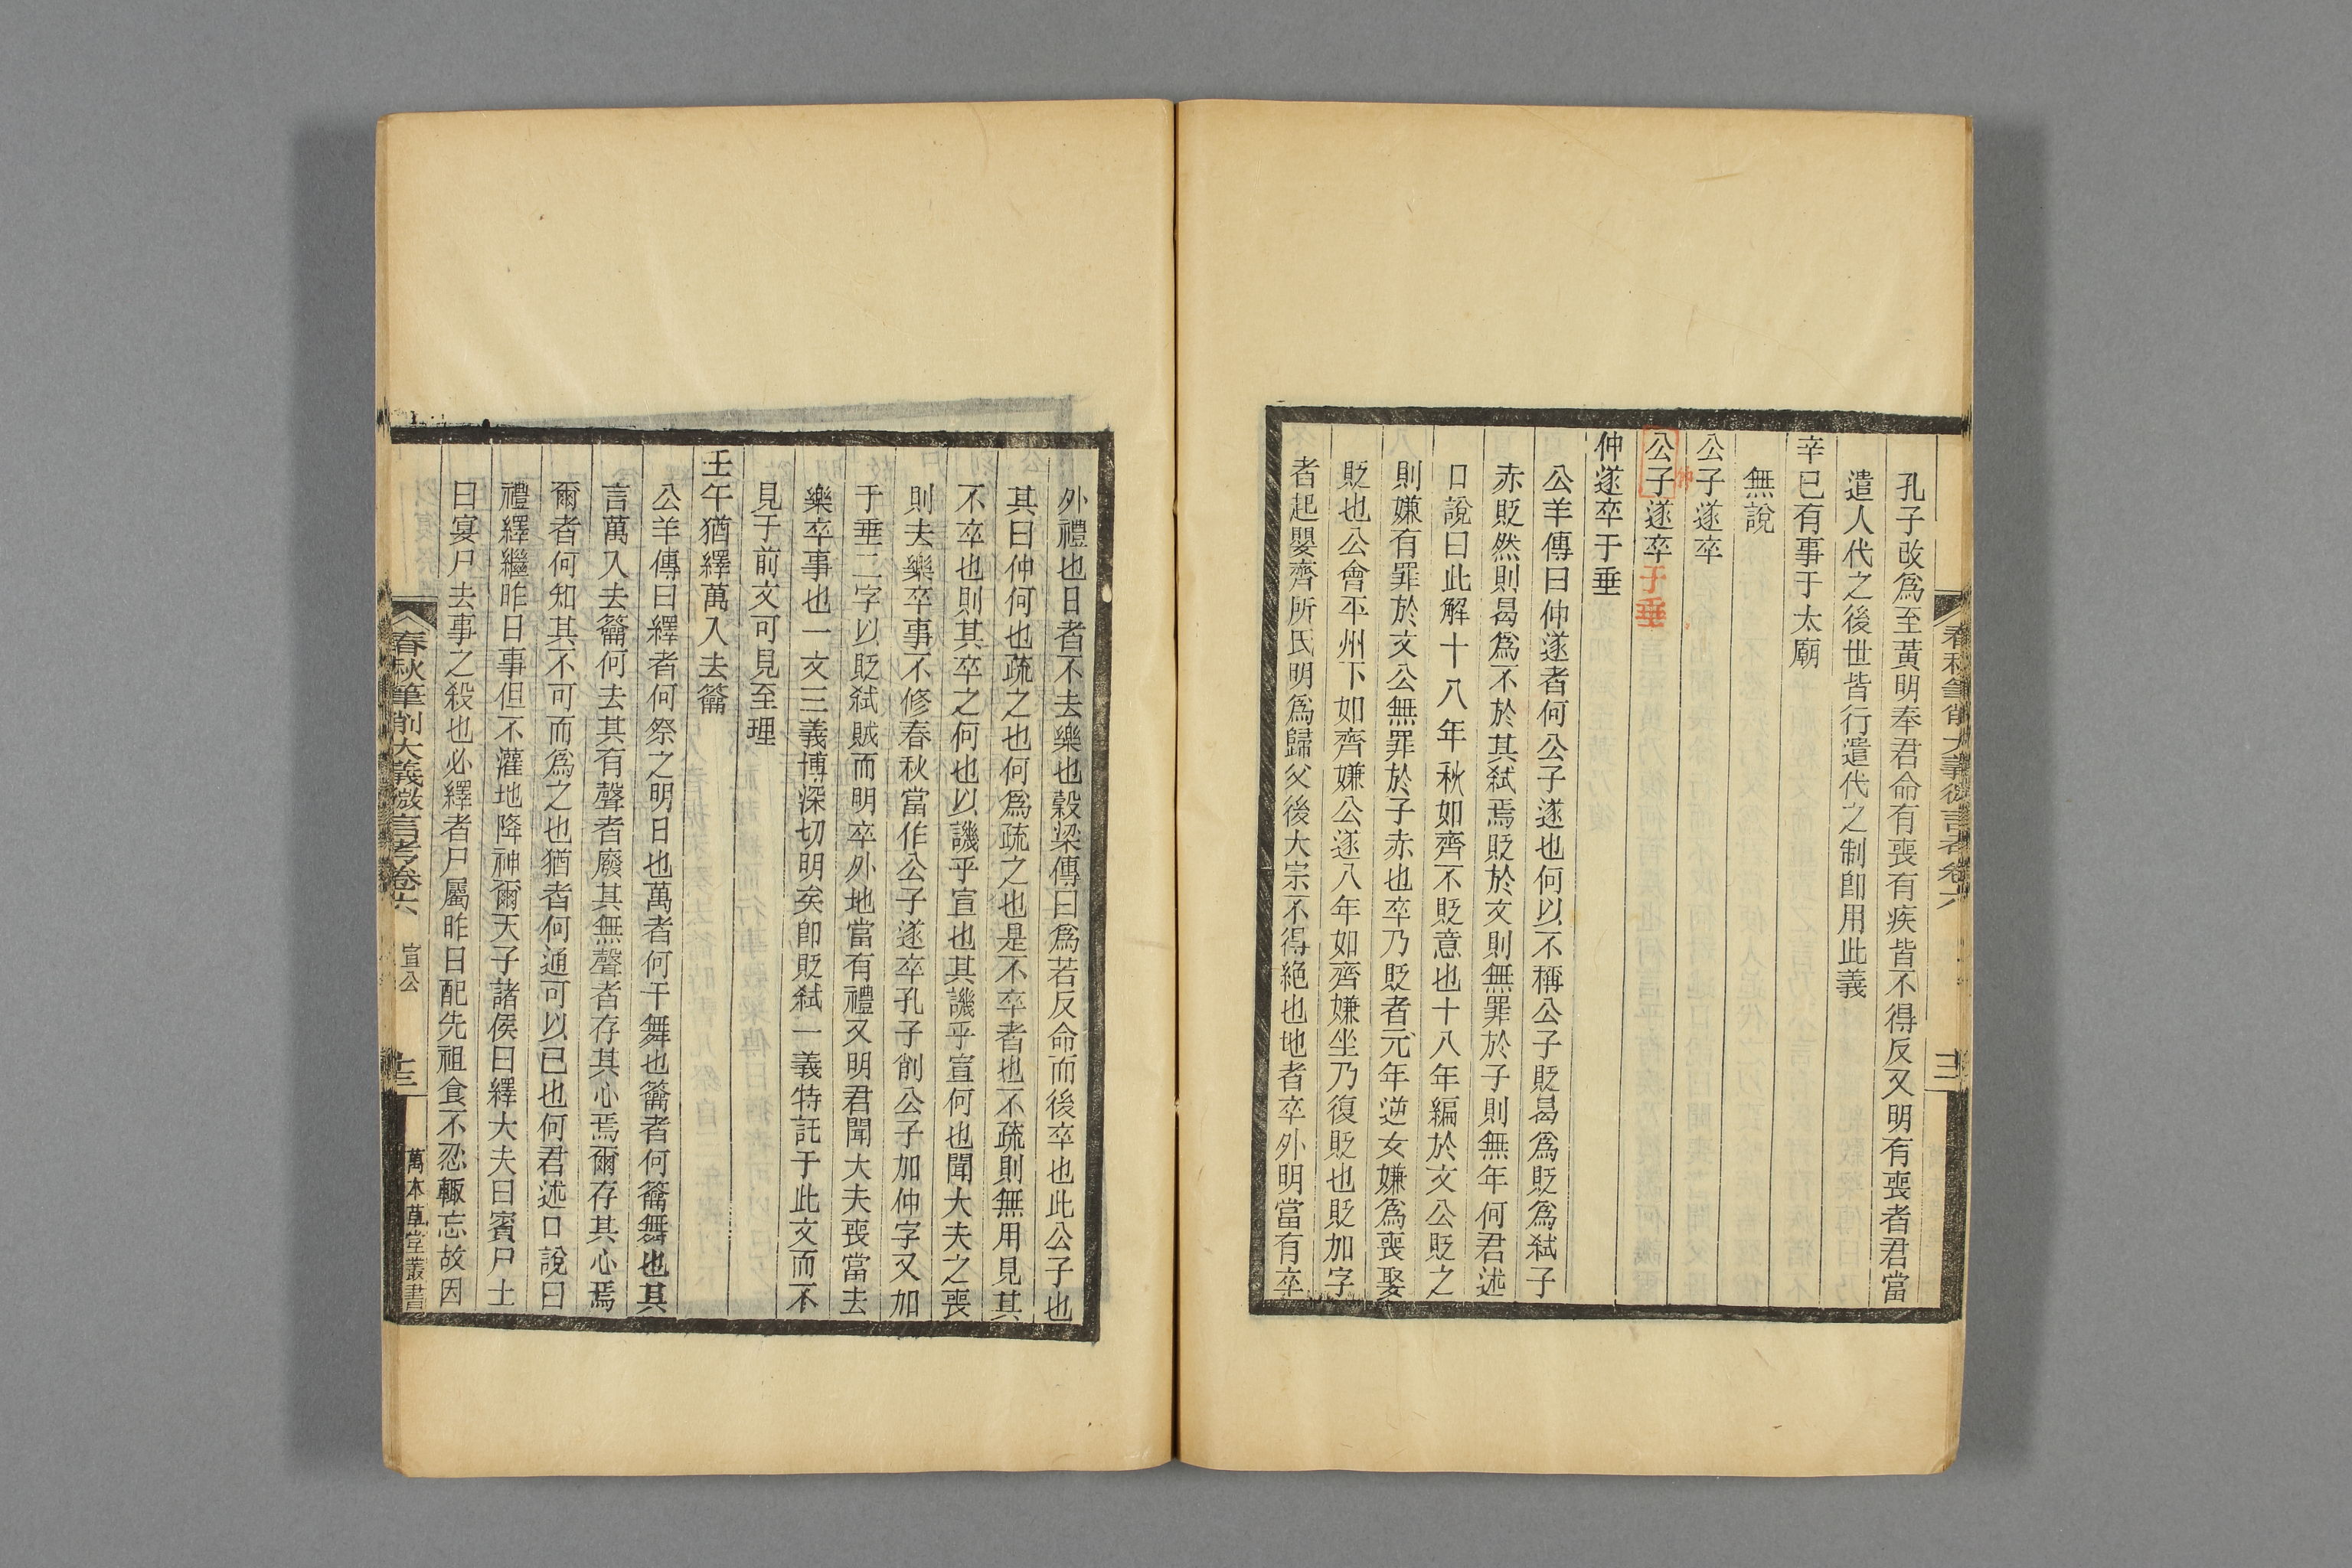 孔子改爲至黃明奉君命有喪有疾皆不得反又明有喪者君當
遣人代之後世皆行遣代之制卽用此義
辛巳有事于太廟
無說
公子遂卒
仲
公子遂卒于垂
仲遂卒于垂
公羊傳曰仲遂者何公子遂也何以不稱公子貶曷爲貶爲弒子
赤貶然則曷爲不於其弒焉貶於文則無罪於子則無年何君述
口說曰此解十八年秋如齊不貶意也十八年編於文公貶之
則嫌有罪於文公無罪於子赤也卒乃貶者元年逆女嫌爲喪娶
貶也公會平州下如齊嫌公遂八年如齊嫌坐乃復貶也貶加字
者起嬰齊所氏明爲歸父後大宗不得絕也地者卒外明當有卒
春秋筆削大義微言考卷六
外禮也日者不去樂也穀梁傳曰爲若反命而後卒也此公子也
其曰仲何也疏之也何爲疏之也是不卒者也不疏則無用見其
不卒也則其卒之何也以譏乎宣也其譏乎宣何也聞大夫之喪
則去樂卒事不修春秋當作公子遂卒孔子削公子加仲字又加
于垂二字以貶弒賊而明卒外地當有禮又明君聞大夫喪當去
樂卒事也一文三義博深切明矣卽貶弒一義特託于此文而不
見于前文可見至理
壬午猶繹萬入去籥
公羊傳曰繹者何祭之明日也萬者何干舞也籥者何籥舞也其
言萬入去籥何去其有聲者廢其無聲者存其心焉爾存其心焉
爾者何知其不可而爲之也猶者何通可以已也何君述口說曰
禮繹繼昨日事但不灌地降神爾天子諸侯曰繹大夫曰賓尸士
曰宴尸去事之殺也必繹者尸屬昨日配先祖食不忍輒忘故因
春秋筆削大義微言考卷六 宣公 十三 萬木草堂叢書